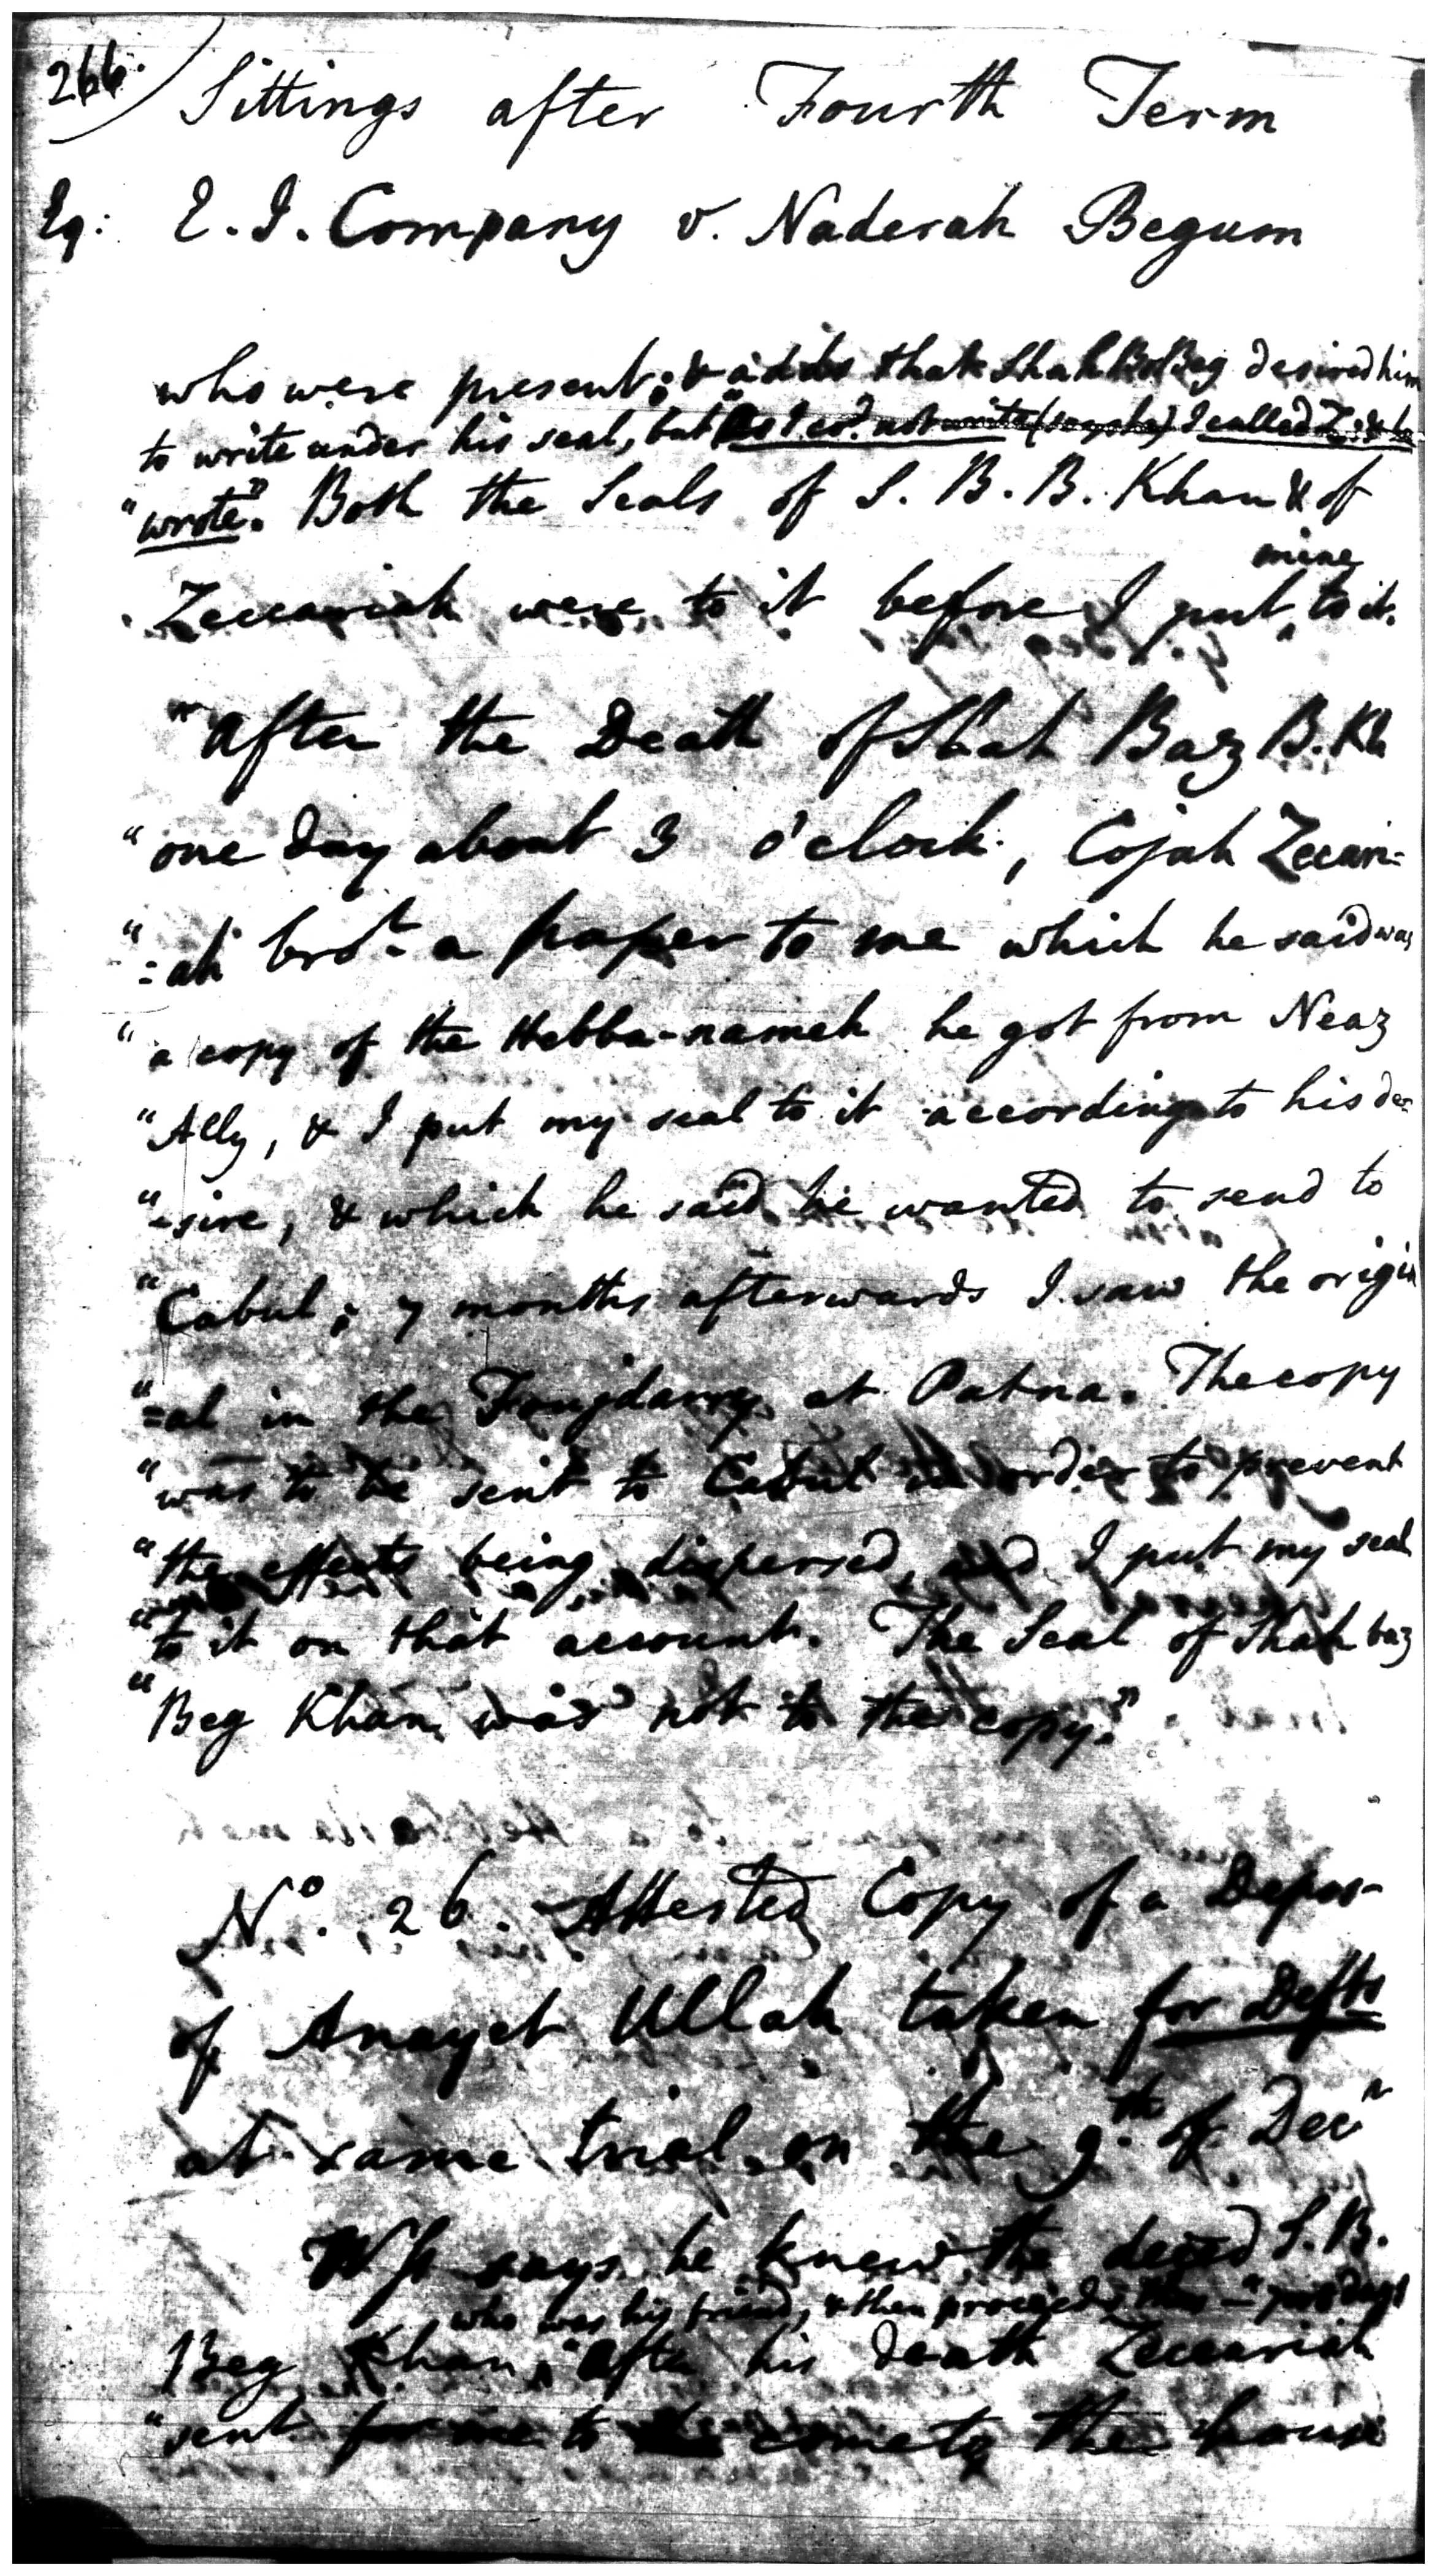 266.
Sittings after Fourth Term
Eq: E. I. Company v. Naderah Begum
who were present; & adds that Shah Bz Beg desired him
to write under his seal, but "as I cod. not write (says he) I called Z, & he
"wrote". Both the Seals of S. B. B. Khan & of
mine
Zeccariah were to it before I put ‸ to it.
"After the Death of Shah Baz B. Kh
"one day about 3 o'clock, Cojah Zecari=
"=ah brot. a paper to me which he said was
"a copy of the Hebba-nameh he got from Neaz
"Ally, & I put my seal to it according to his de=
"-sire, & which he said he wanted to send to
"Cabul; 7 months afterwards I saw the origin
"=al in the Foujdarry at Patna. The copy
"was to be sent to Cabul in order to prevent
"the effects being dispersed, and I put my seal
"to it on that account. The Seal of Shah baz
"Beg Khan was not to the copy."
No. 26. Attested Copy of a Depos-
of Anayet Ullah taken for Defts
at same trial on the 9th. of Decr
Ws says he knew the deced S. B.
who was his friend, & then proceeds
Beg Khan, ‸ "After his death Zeccariah
"sent for me to come to the house